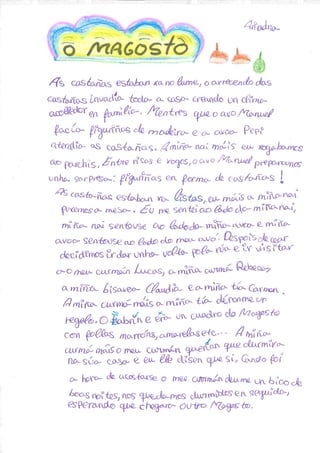 Ariadna
O MAGOSTO
As castañas estaban xa no lume, o arrecendo das
castañas invadía toda a casa creando un clima
acolledor en familia. Mentres que o avo Manuel
facía figuriñas de madeira e a avoa Pepi
atendía as castañas. A miña nai máis eu xogabamos
ao parchís. Entre risas e xogos, o avo Manuel preparounos
unha sorpresa: figuriñas en forma de castañas!
As castañas estaban xa listas, eu máis a miña nai
puxemos a mesa. Eu me sentei ao lado da miña nai,
miña nai sentouse ao lado da miña avoa e miña
avoa sentouse ao lado do meu avo. Despois de cear
decidimos ir dar unha volta pola rúa e ir visitar
a o meu curmán Lucas, a miña curmá Rebeca,
a miña bisavoa Claudia e a miña tía Carmen.
A miña curmá máis a miña tía déronme un
regalo. O era un cuadro do Magosto
con follas marróns, amarelas etc... A miña
curmá máis o meu curmán querían que durmira
na súa casa e eu lle dixen que si. Cando foi
a hora de acostarse o meu curmán deume un bico de
boas noites, nos quedamos durmidos en seguida,
esperando que chegara outro Magosto.